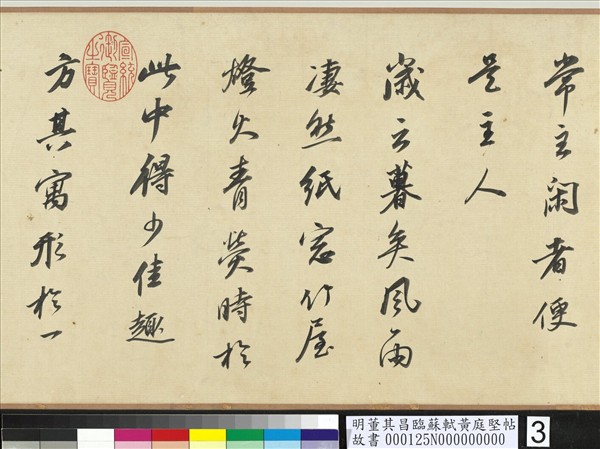 常主閑者便
是主人
歲云暮矣風雨
凄然紙窓竹屋
燈火青熒時於
此中得少佳趣
方其寓形於一
宣統御覽之寶
明董其昌臨蘇軾黃庭堅帖
故書 000125N000000000
3